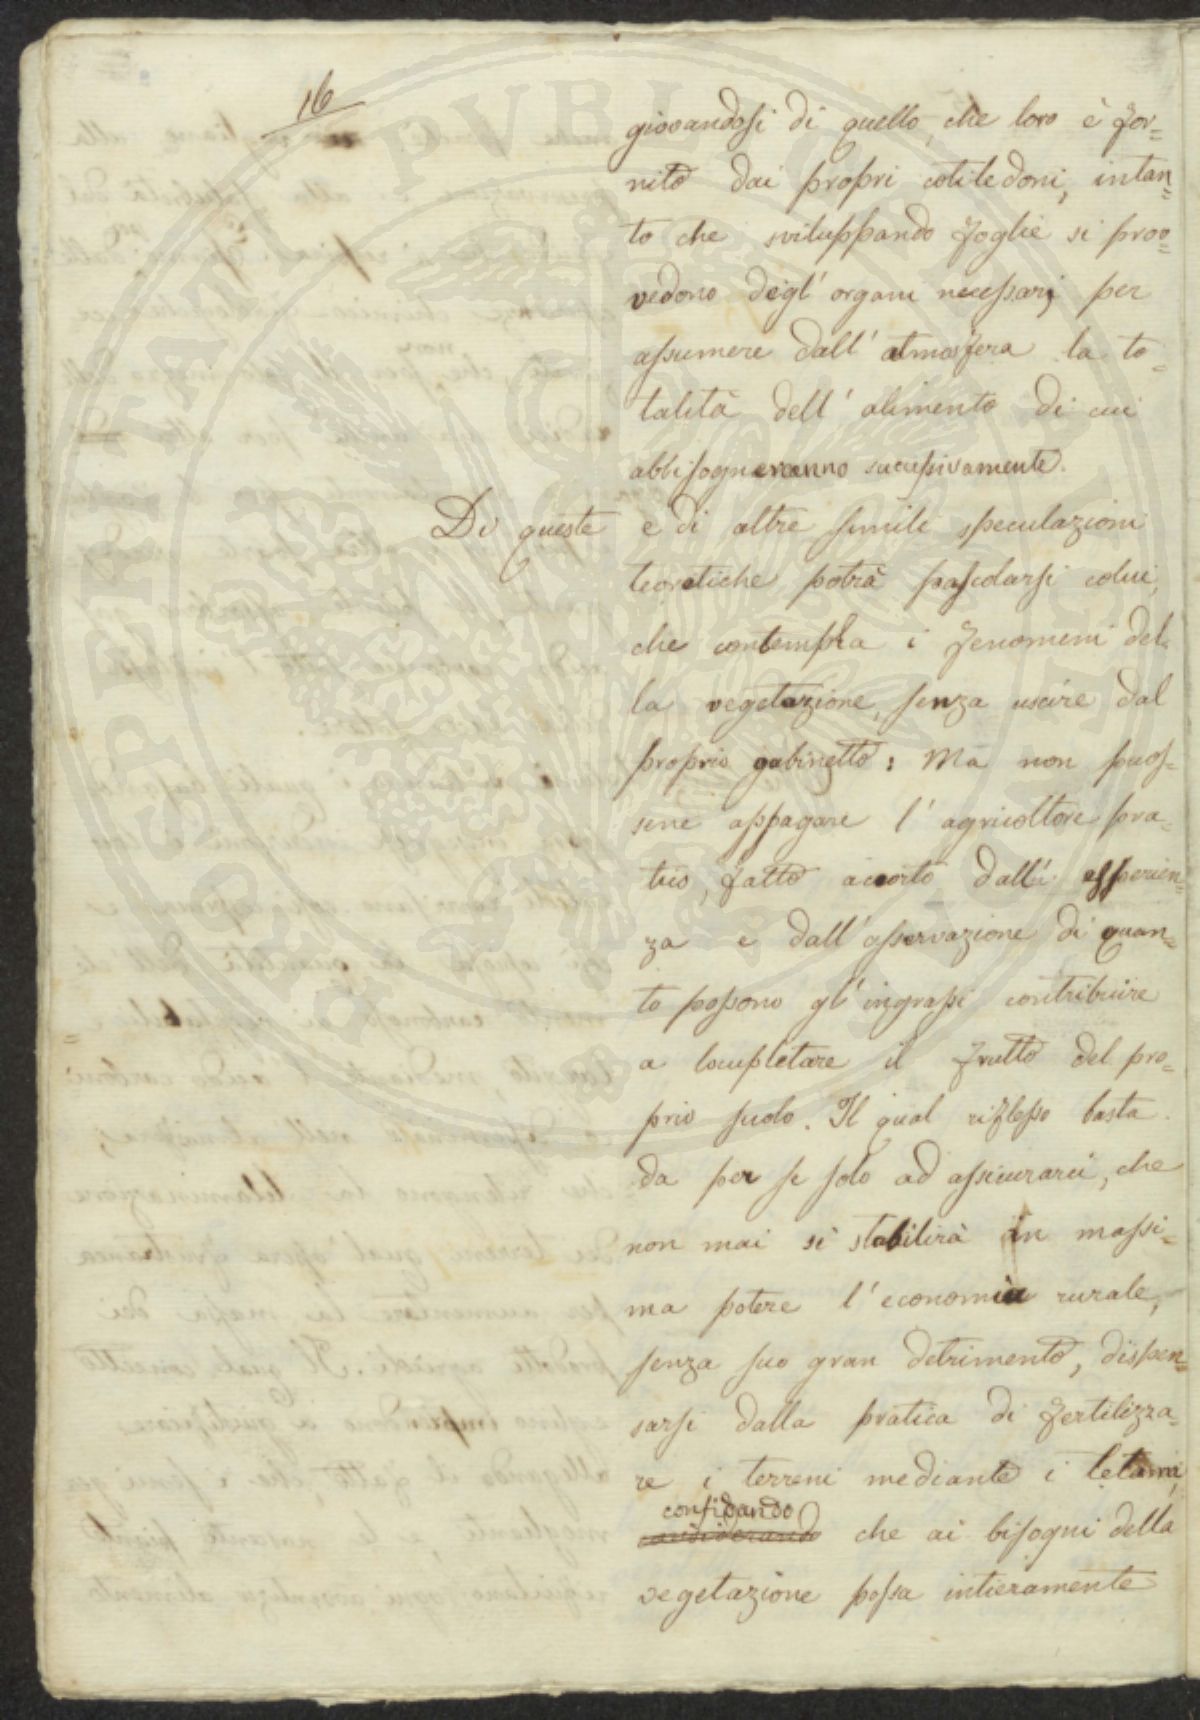 16
giovandosi di quello, che loro è for=
nito dai propri cotiledoni, intan=
to che sviluppando foglie si prov=
vedono degl' organi necessarj per
assumere dall' atmosfera la to=
talità dell' alimento di cui
abbisogneranno successivamente.
Di queste e di altre simili speculazioni
teoretiche potrà pascolarsi colui,
che contempla i fenomeni del-
la vegetazione, senza uscire dal
proprio gabinetto: Ma non puos=
sene appagare l' agricoltore pra=
tico, fatto accorto dall' esperien=
za e dall' osservazione di quan=
to possono gl' ingrassi contribuire
a locupletare il frutto del pro=
prio suolo. Il qual riflesso basta
da per se solo ad assicurarci, che
non mai si stabilirà in massi=
ma potere l' economia rurale,
senza suo gran detrimento, dispen=
sarsi dalla pratica di fertilizza=
re i terreni mediante i letami,
confidando
considerando che ai bisogni della
vegetazione possa intieramente